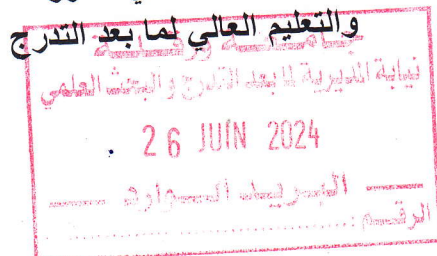 والتعليم العالي لما بعد التدرج
جامعة ورقلة
نيابة المديرية لما بعد التدرج والبحث العلمي
26 JUIN 2024
البريد الوارد
الرقم: